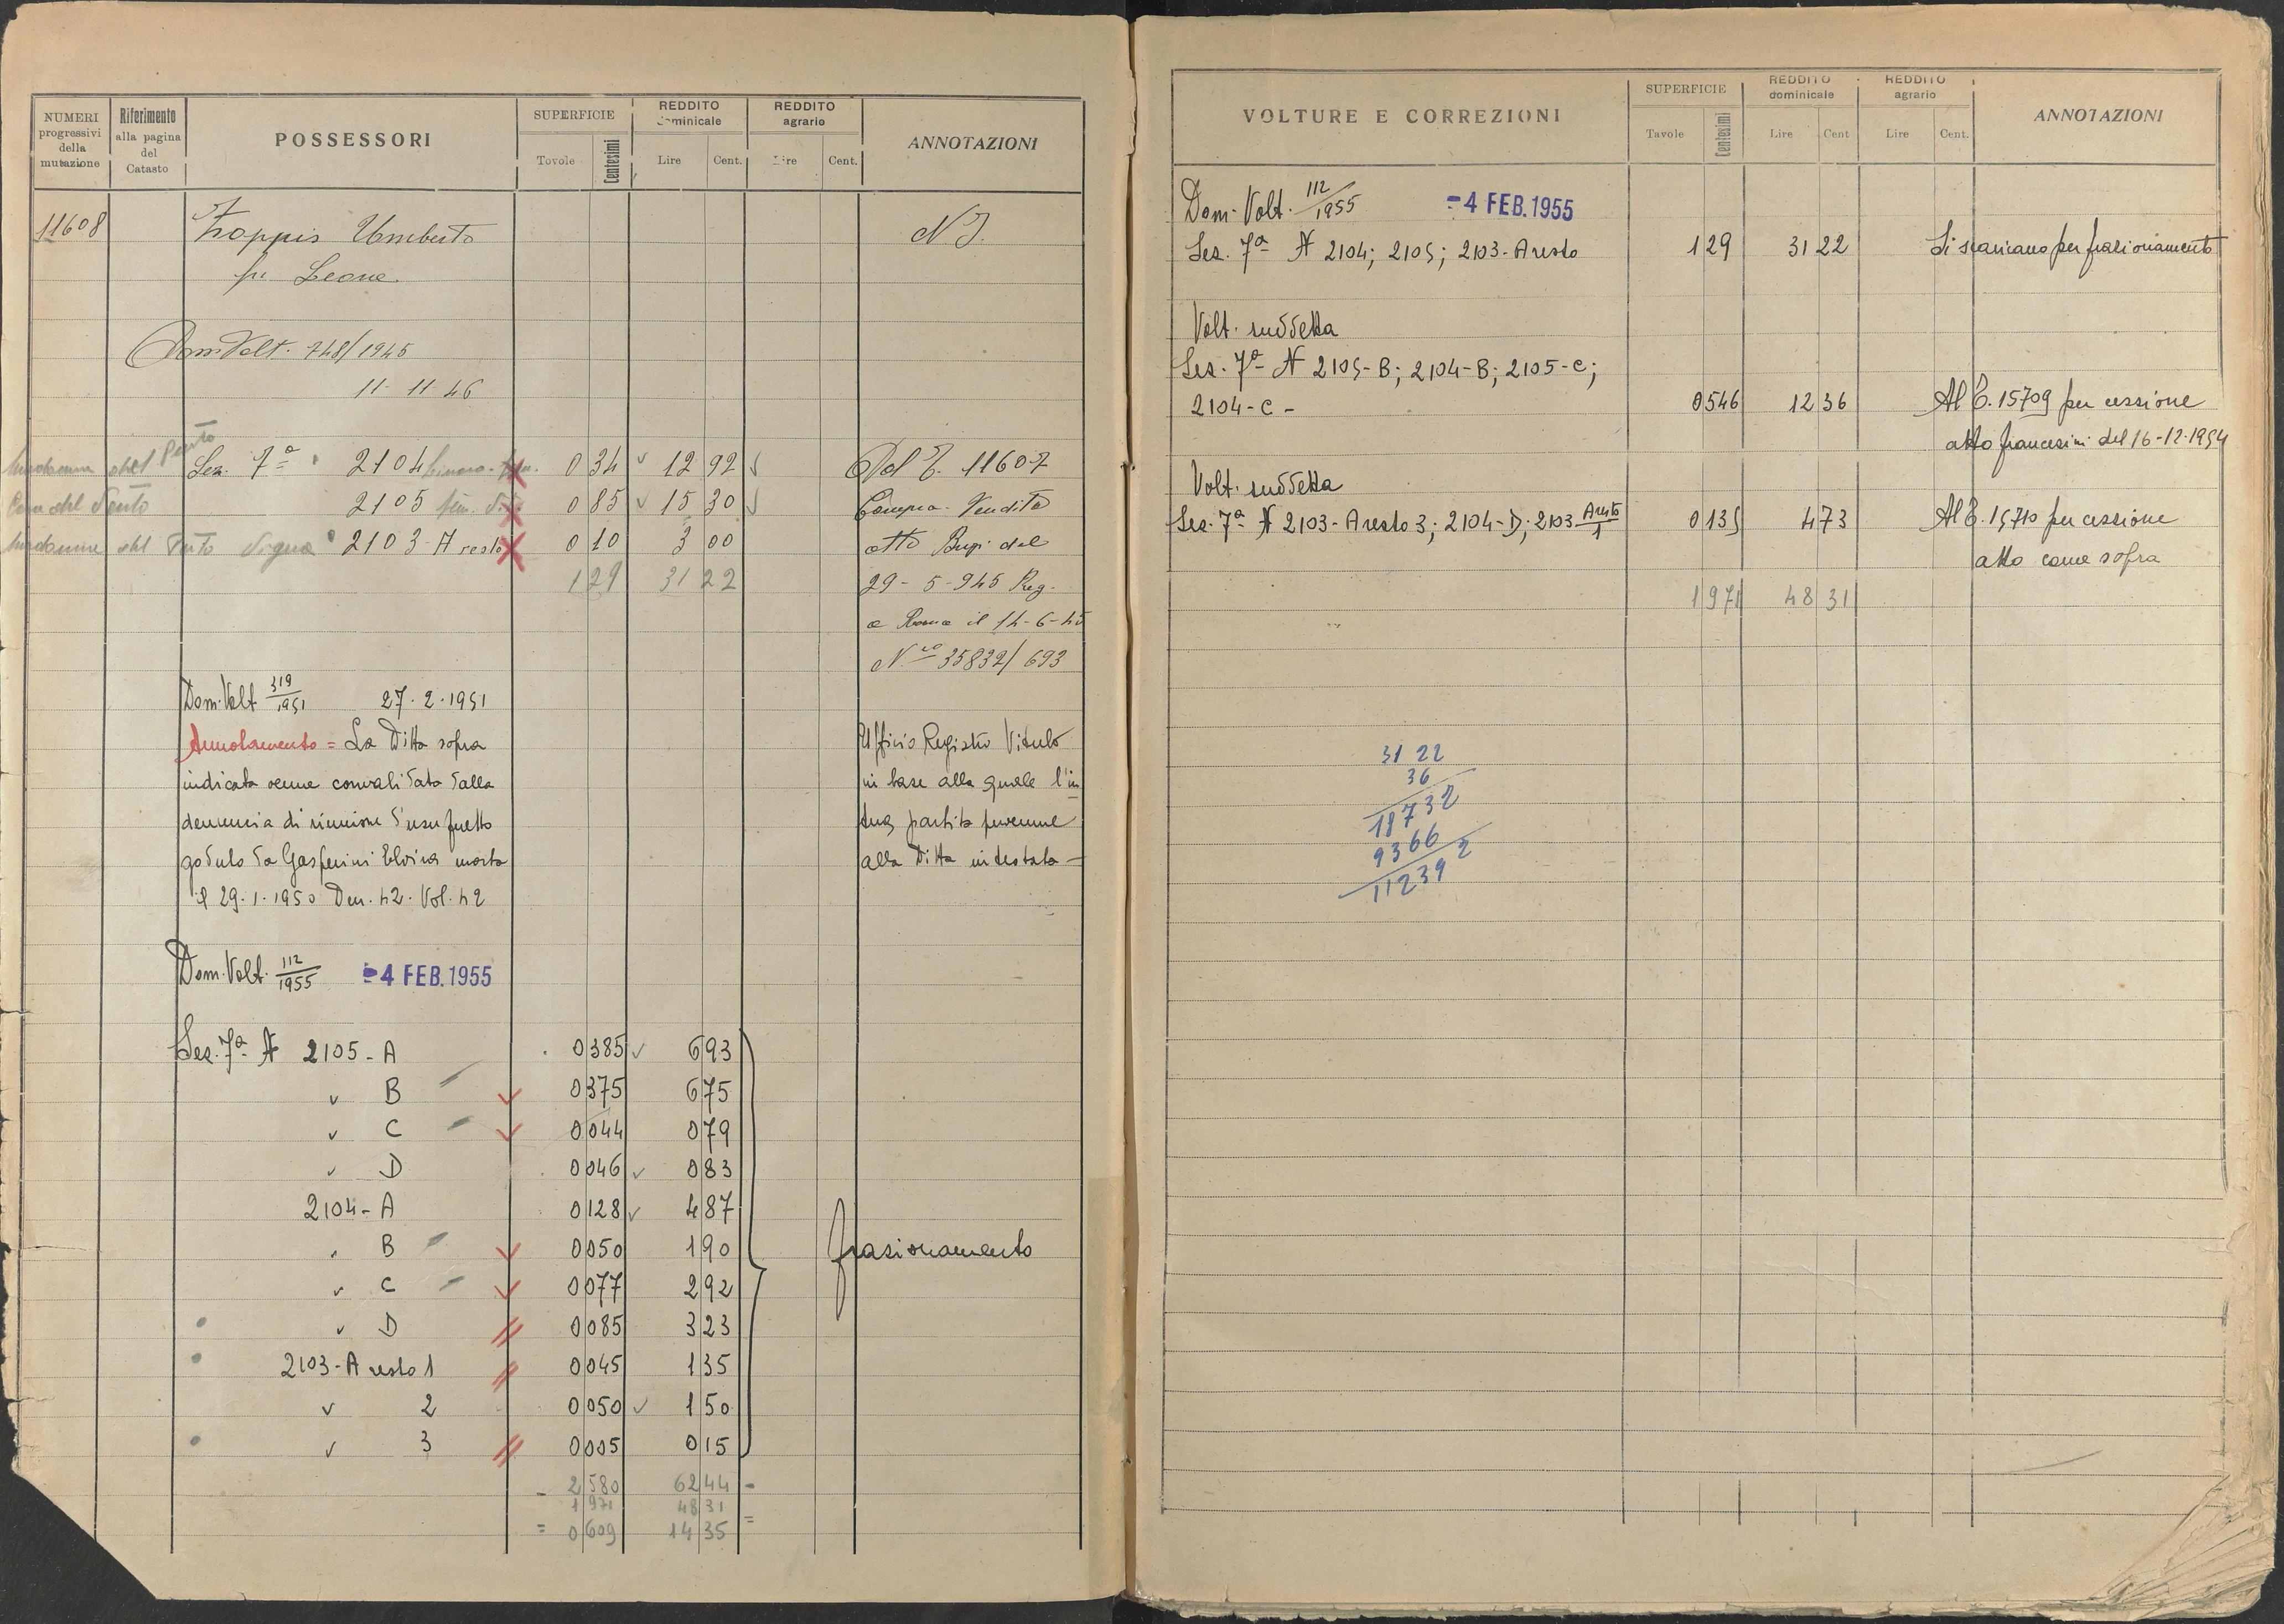 NUMERI progressivi della mutazione
Riferimento alla pagina del Catasto
POSSESSORI
SUPERFICIE
Tavole Centesimi
REDDITO dominicale
Lire Cent.
REDDITO agrario
Lire Cent.
ANNOTAZIONI
11608 Zoppis Umberto N I.
fu Leone
Dom. Volt. 748/1945
11-11-46
Sez. 7ª 2104 0 34 12 92 Dal C. 11607
2105 0 85 15 30 Compra-Vendita
Vigna 2103-A resto 0 10 3 00 atto Bugi del
1 29 31 22 29-5-945 Reg.
a Roma il 14-6-45
N.ro 35832/693
Dom. Volt 319/1951 27.2.1951
Annotamento = La Ditta sopra Ufficio Registro Vitulo
indicata venne convalidata dalla in base alla quale l'in
denuncia di riunione d'usufrutto
goduto da Gasperini Elvira morta alla Ditta intestata -
il 29.1.1950 Den. 42. Vol. 42
Dom. Volt. 112/1955 -4 FEB. 1955
Sez. 7ª N 2105-A 0 385 6 93
" B 0 375 6 75
" C 0 044 0 79
" D 0 046 0 83
2104-A 0 128 4 87
" B 0 050 1 90 frazionamento
" C 0 077 2 92
" D 0 085 3 23
2103-A resto 1 0 045 1 35
" 2 0 050 1 50
" 3 0 005 0 15
- 2 580 62 44 -
1 971 48 31
= 0 609 14 35 =
VOLTURE E CORREZIONI
SUPERFICIE
Tavole Centesimi
REDDITO dominicale
Lire Cent
REDDITO agrario
Lire Cent.
ANNOTAZIONI
Dom. Volt. 112/1955 -4 FEB. 1955
Sez. 7ª N 2104; 2105; 2103-A resto 1 29 31 22 Si scaricano per frazionamento
Volt. suddetta
Sez. 7ª N 2105-B; 2104-B; 2105-C;
2104-C - 0 546 12 36 Al C. 15709 per cessione
atto Francesini del 16-12-1954
Volt. suddetta
Sez. 7ª N 2103-A resto 3; 2104-D; 2103 A resto/1 0 135 4 73 Al C. 15710 per cessione
atto come sopra
1 971 48 31
31 22
36
18732
9366
11239 2